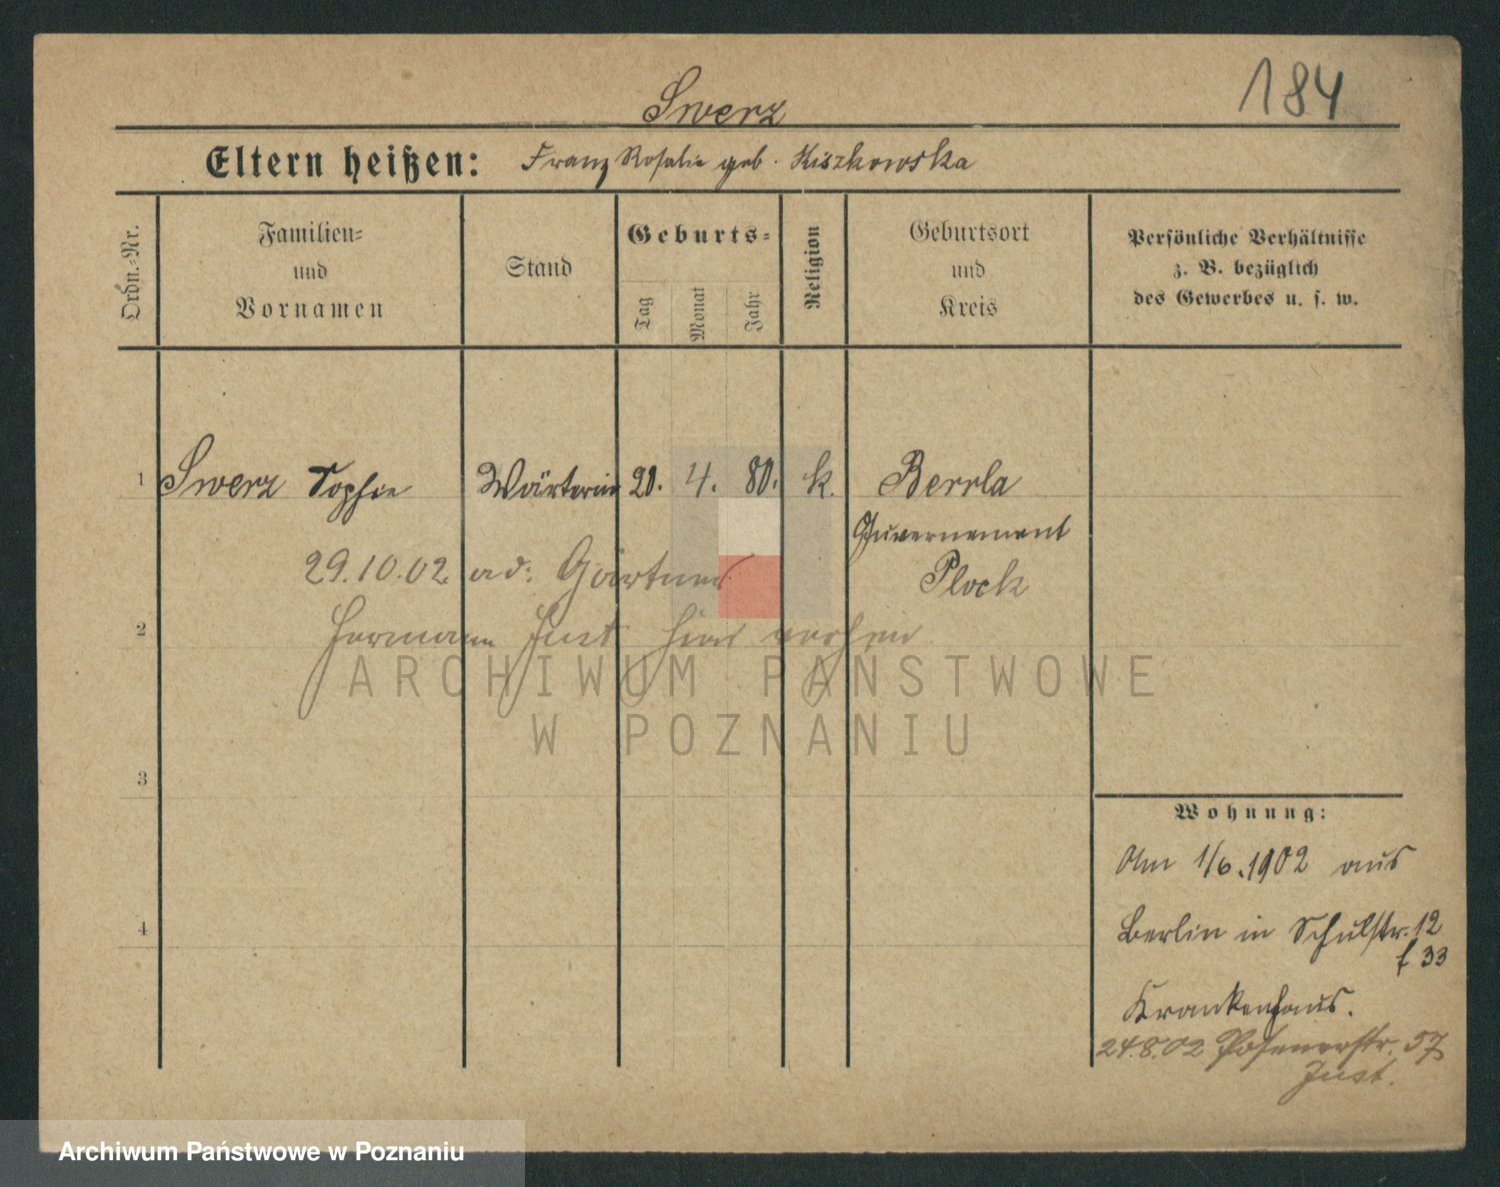 184
Swerz
Eltern heißen: Franz Rosalie geb. Kiszkowska
Ordn.-Nr.
Familien-
und
Vornamen
Stand
Geburts-
Tag
Monat
Jahr
Religion
Geburtsort
und
Kreis
Persönliche Verhältnisse
z. B. bezüglich
des Gewerbes u. s. w.
1 Swerz Sophie Wärterin 20. 4. 80. k. Berrla
Guvernement
29.10.02. ad: Gärtner Plock
2 Hermann Just hier
ARCHIWUM PAŃSTWOWE
W POZNANIU
3
Wohnung:
Am 1/6.1902 aus
4 Berlin in Schulstr. 12
f 33
Krankenhaus.
24.8.02 Posenerstr. 57
Just.
Archiwum Państwowe w Poznaniu